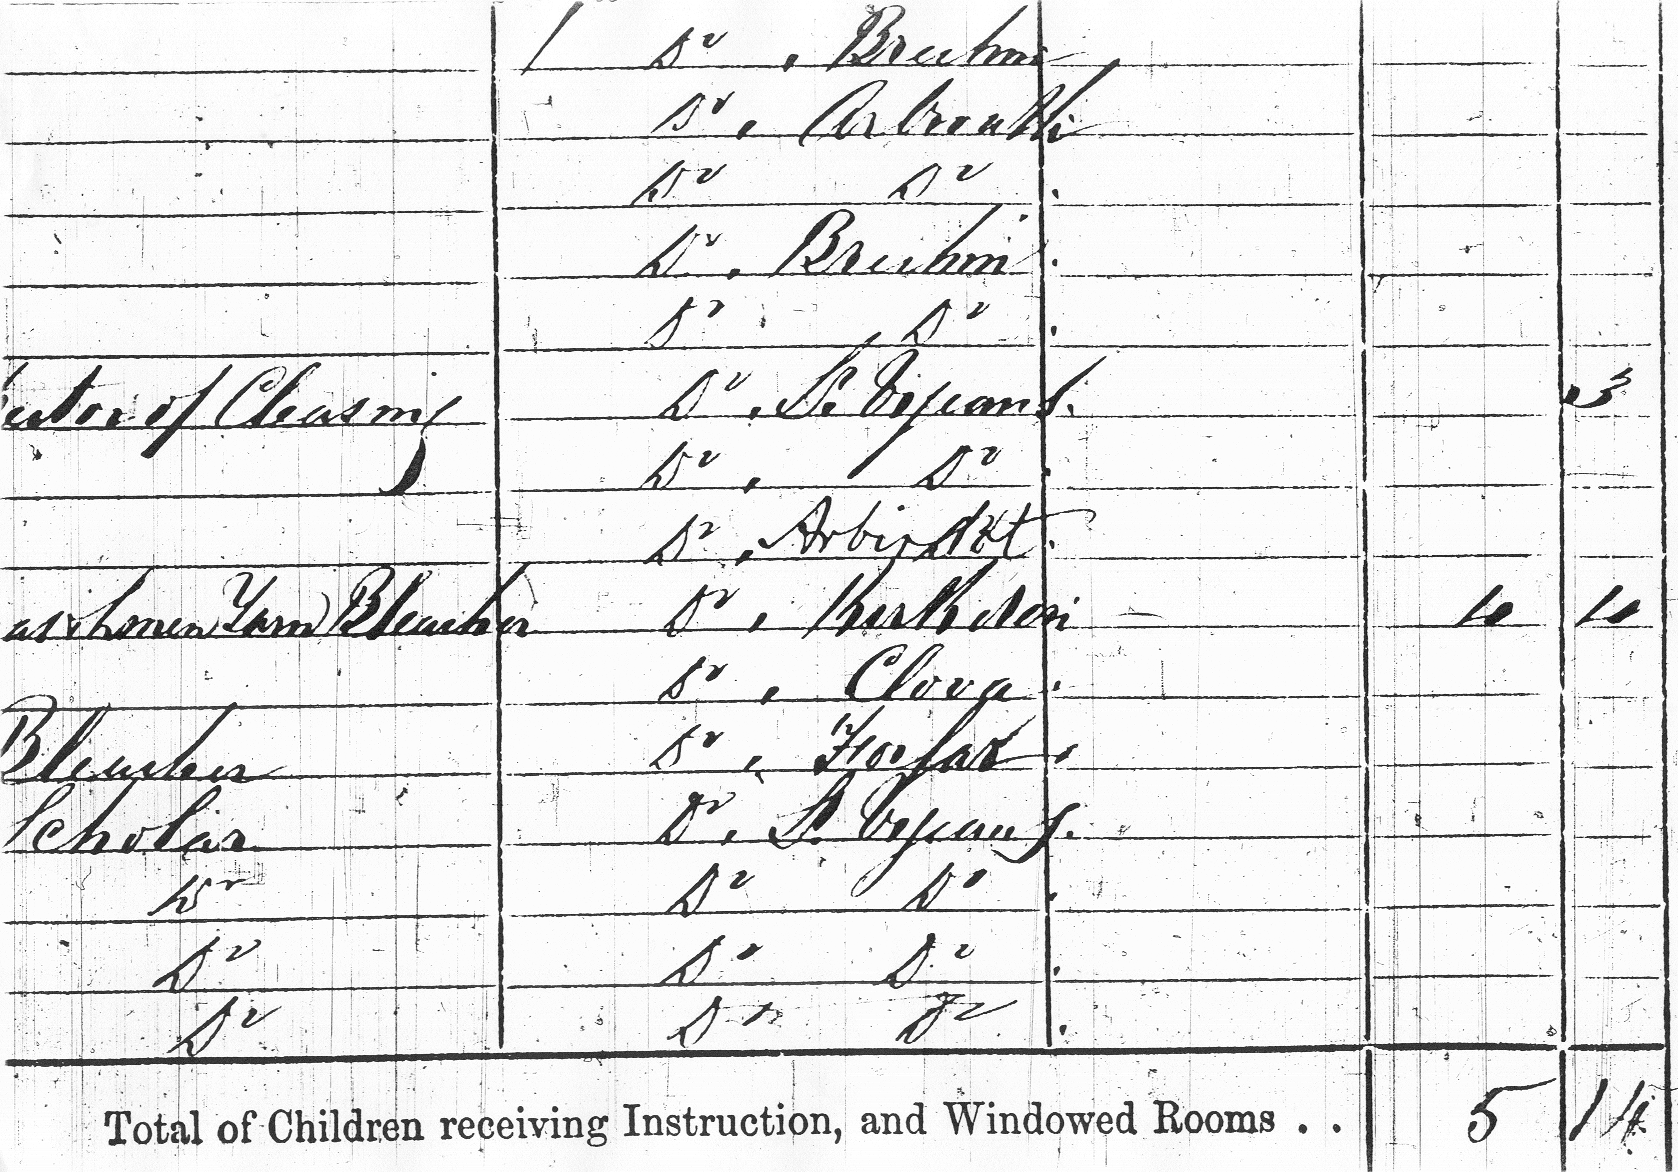 Do . Brechin
Do . Arbroath
Do Do .
Do . Brechin .
Do Do .
of Do . St. Vigeans . 3
Do . Do .
Do . Arbirlot .
Yarn Bleacher Do . Kirkden 4 4
Do . Clova .
Bleacher Do . Forfar .
Scholar Do . St. Vigeans .
Do Do Do .
Do Do Do .
Do Do Do .
Total of Children receiving Instruction, and Windowed Rooms . . 5 14